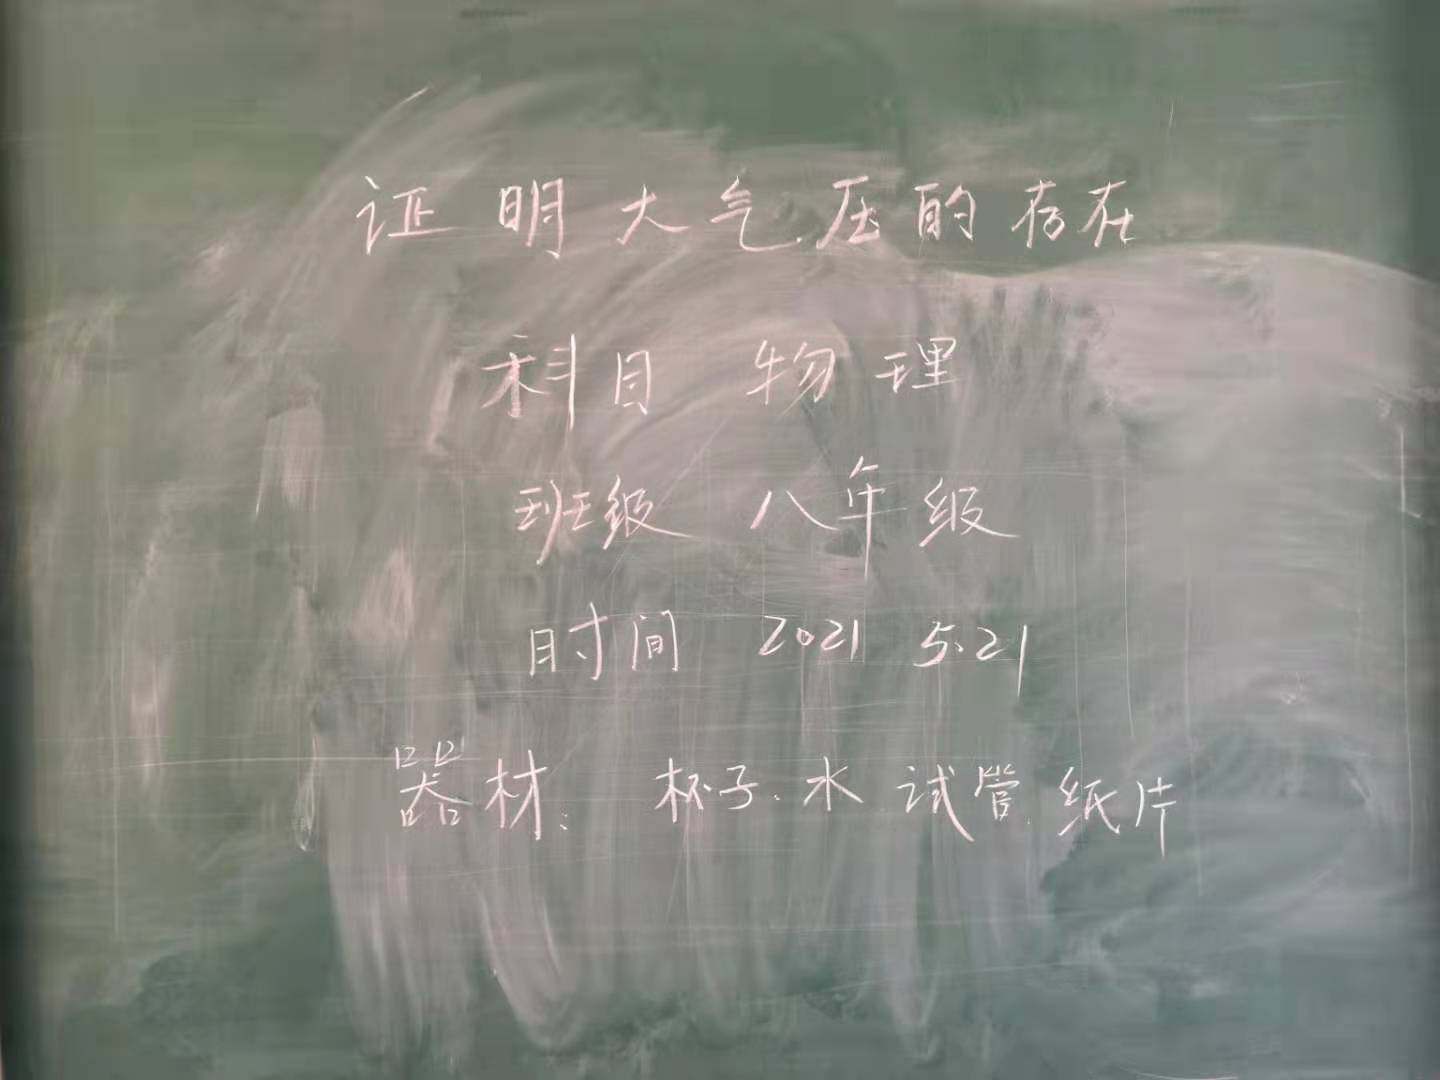 证明大气压的存在
科目 物理
班级 八年级
时间 2021 5.21
器材: 杯子.水 试管.纸片